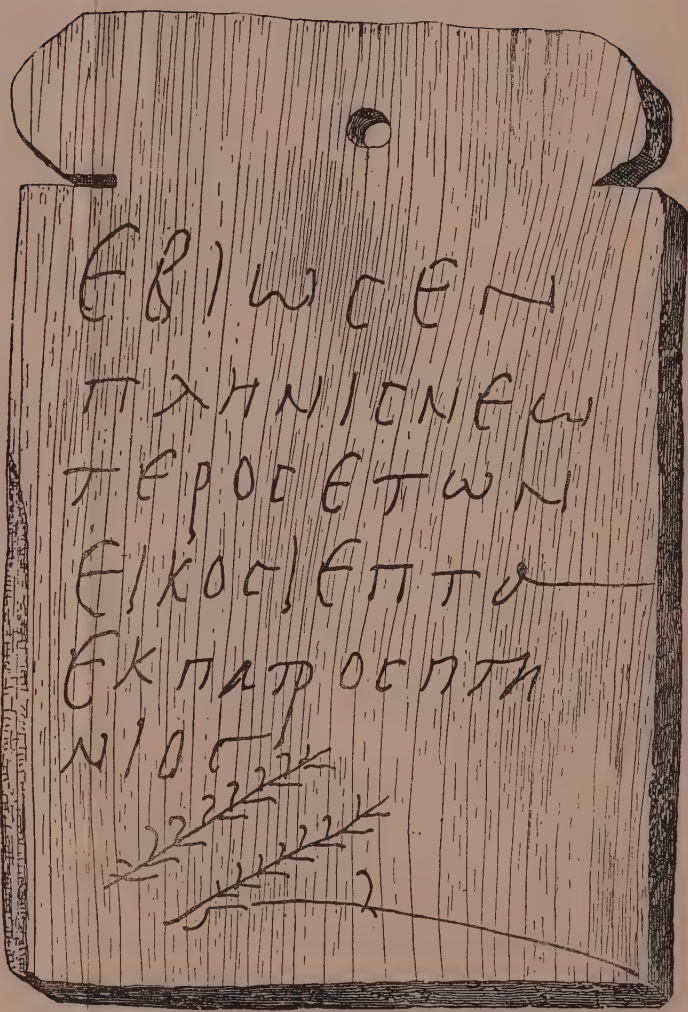 ΕΒΙωϹΕΝ
ΠΛΗΝΙϹΝΕω
ΤΕΡΟϹΕΤωΝ
ΕΙΚΟϹΙΕΠΤΑ
ΕΚΠΑΤΡΟϹΠΤΗ
ΝΙΟϹ